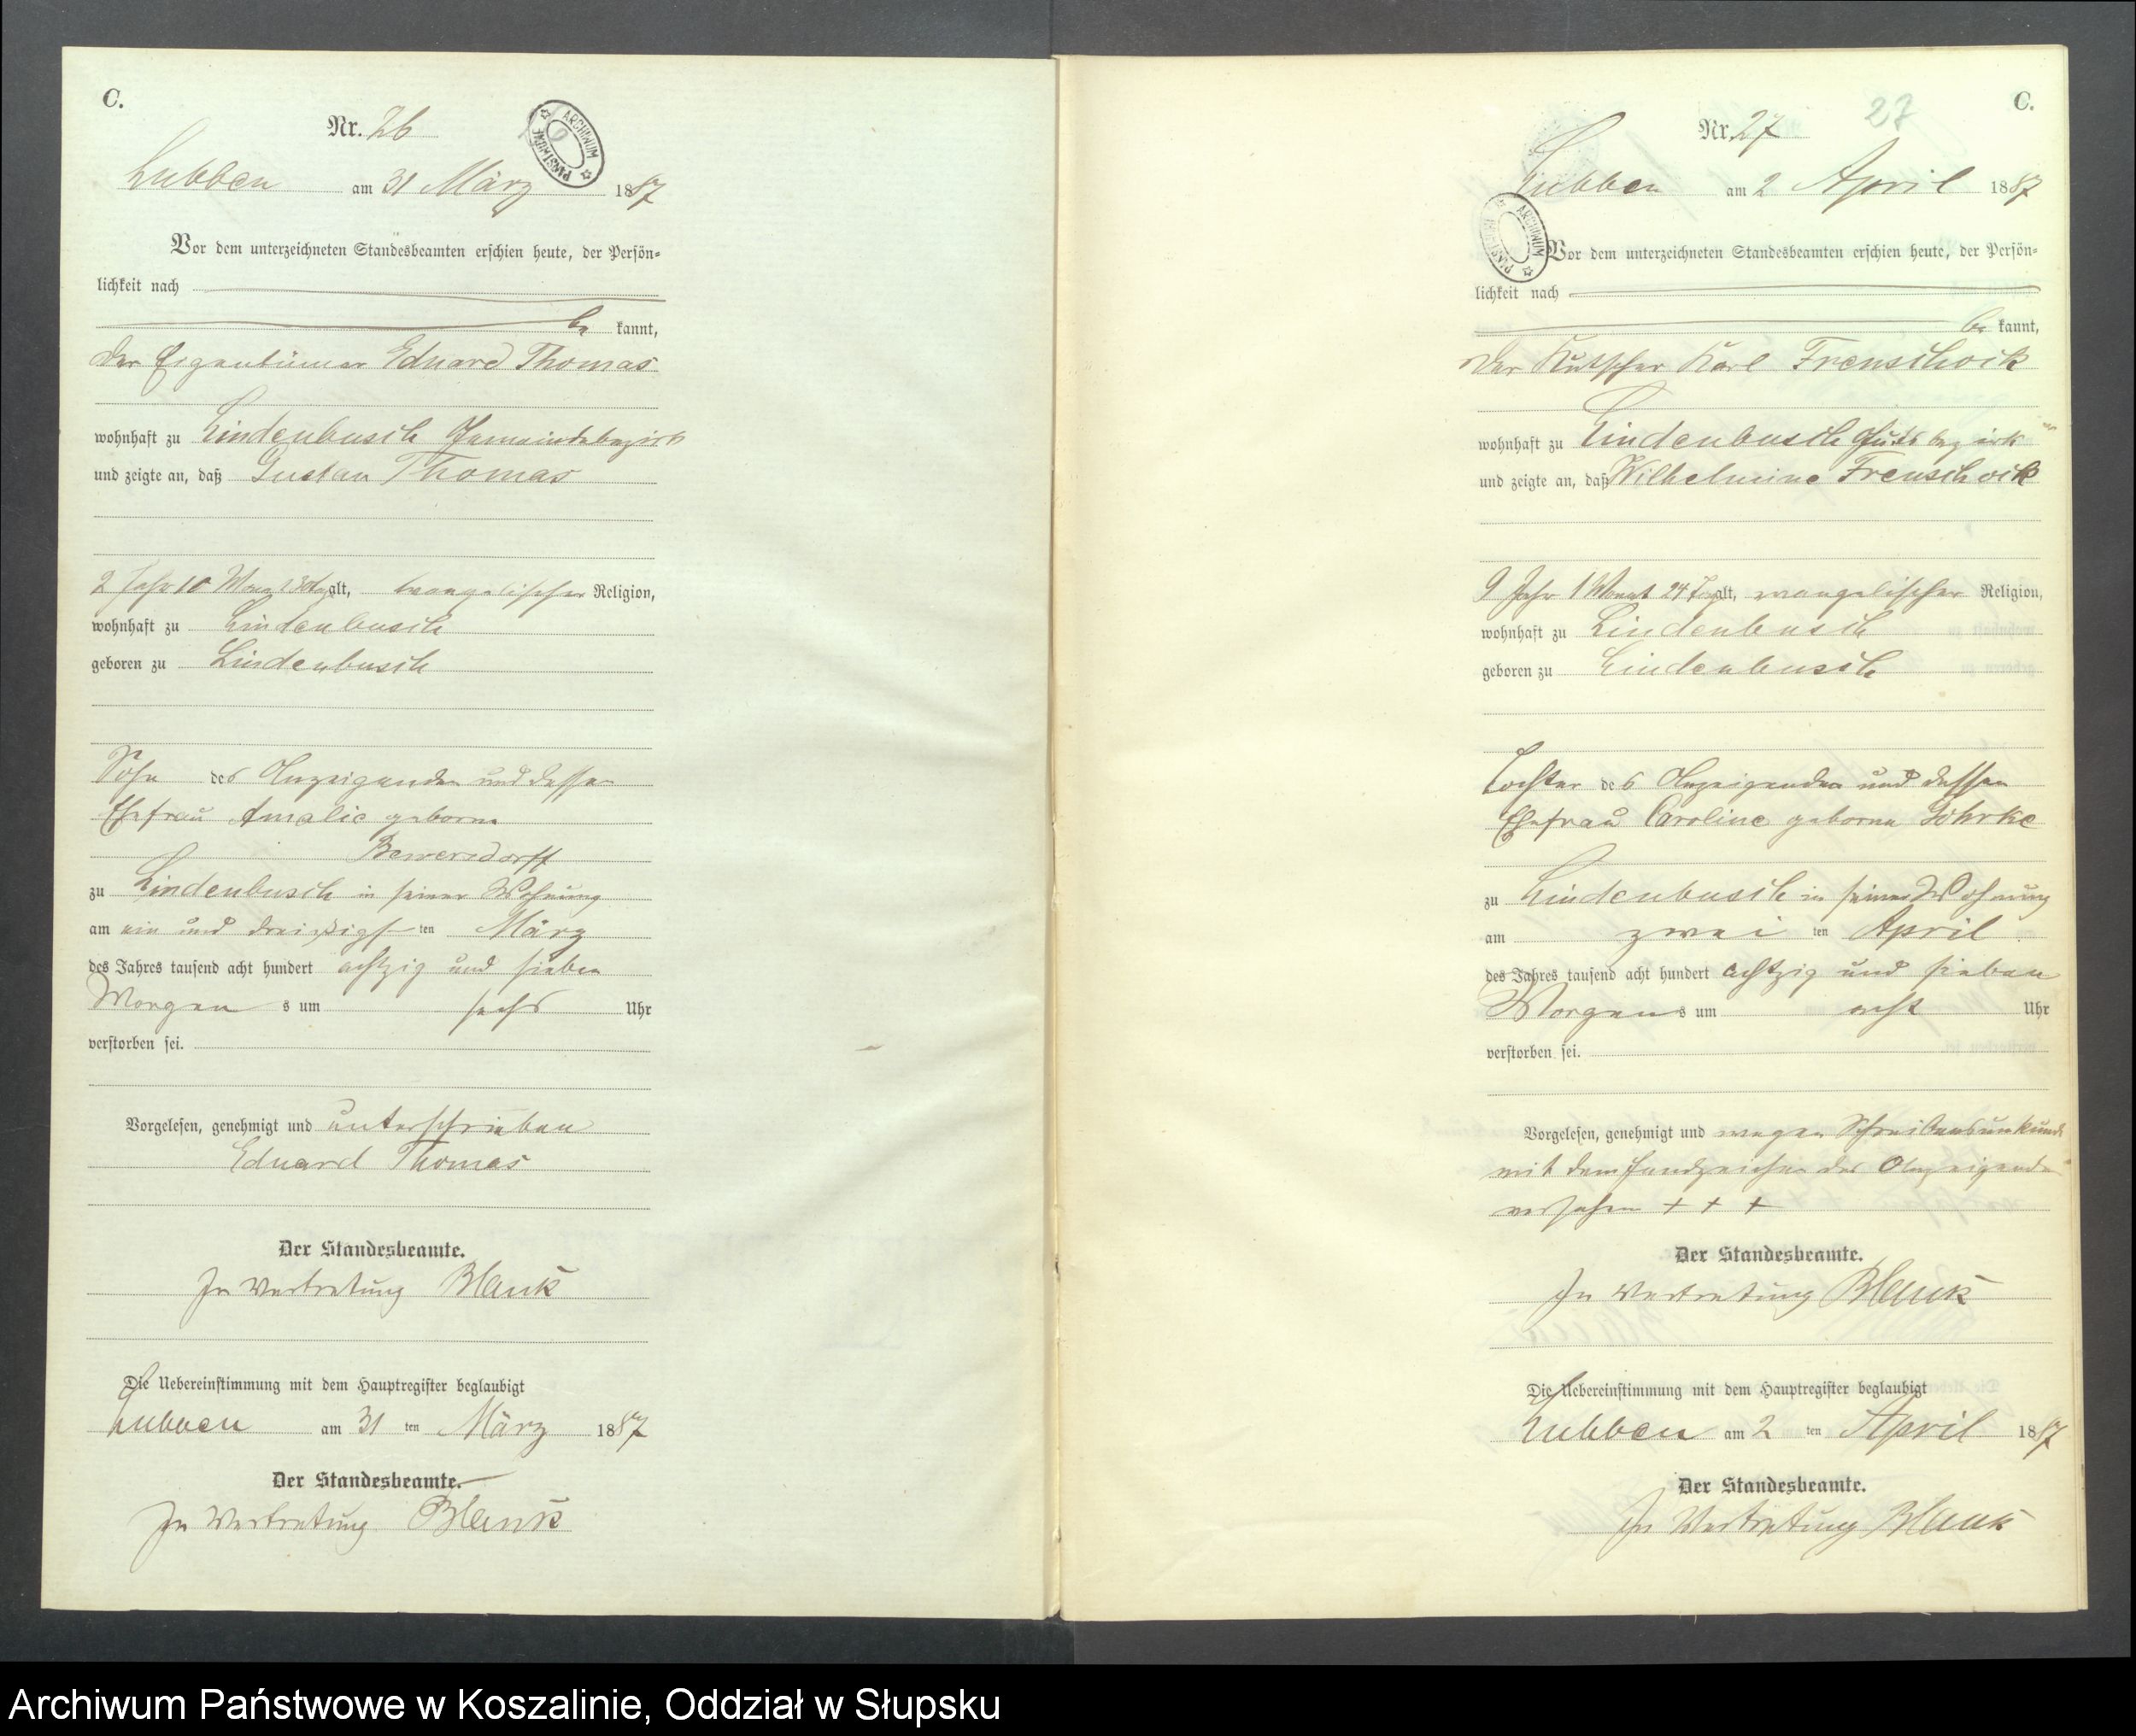 C.
Nr. 26
ARCHIWUM PAŃSTWOWE
Lubben am 31 März 1887
Vor dem unterzeichneten Standesbeamten erschien heute, der Persön=
lichkeit nach
be kannt,
der Eigenthümer Eduard Thomas
wohnhaft zu Lindenbusch Gemeindebezirk
und zeigte an, daß Gustav Thomas
2 Jahr 10 Mon alt, evangelischer Religion,
wohnhaft zu Lindenbusch
geboren zu Lindenbusch
Sohn des Anzeigenden und dessen
Ehefrau Amalie geborne
Bewersdorff
zu Lindenbusch in seiner Wohnung
am ein und dreißigs ten März
des Jahres tausend acht hundert achtzig und sieben
Morgen s um sechs Uhr
verstorben sei.
Vorgelesen, genehmigt und unterschrieben
Eduard Thomas
Der Standesbeamte.
In Vertretung Blank
Die Uebereinstimmung mit dem Hauptregister beglaubigt
Lubben am 31 ten März 1887
Der Standesbeamte.
In Vertretung Blank
C.
27
Nr. 27
Lubben am 2 April 1887
ARCHIWUM PAŃSTWOWE
Vor dem unterzeichneten Standesbeamten erschien heute, der Persön=
lichkeit nach
be kannt,
der Kutscher Karl Frenschock
wohnhaft zu Lindenbusch Gutsbezirk
und zeigte an, daß Wilhelmine Frenschock
9 Jahr 1 Monat 24 Tag alt, evangelischer Religion,
wohnhaft zu Lindenbusch
geboren zu Lindenbusch
Tochter des Anzeigenden und dessen
Ehefrau Caroline geborne Göhrke
zu Lindenbusch in seiner Wohnung
am zwei ten April
des Jahres tausend acht hundert achtzig und sieben
Morgens s um acht Uhr
verstorben sei.
Vorgelesen, genehmigt und wegen Schreibensunkunde
mit dem Handzeichen des Anzeigenden
versehen + + +
Der Standesbeamte.
In Vertretung Blank
Die Uebereinstimmung mit dem Hauptregister beglaubigt
Lubben am 2 ten April 1887
Der Standesbeamte.
In Vertretung Blank
Archiwum Państwowe w Koszalinie, Oddział w Słupsku